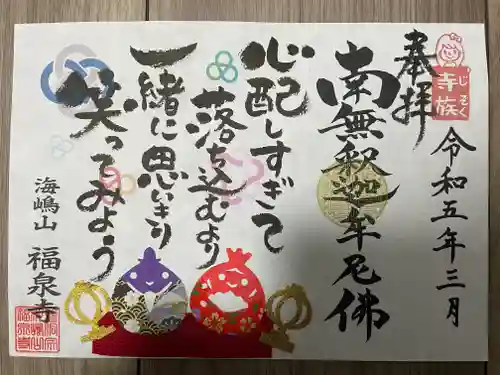 奉拝
寺族
じぞく
令和五年三月
南無釈迦牟尼佛
心配しすぎて
落ち込むより
一緒に思いきり
笑ってみよう
海嶋山
福泉寺